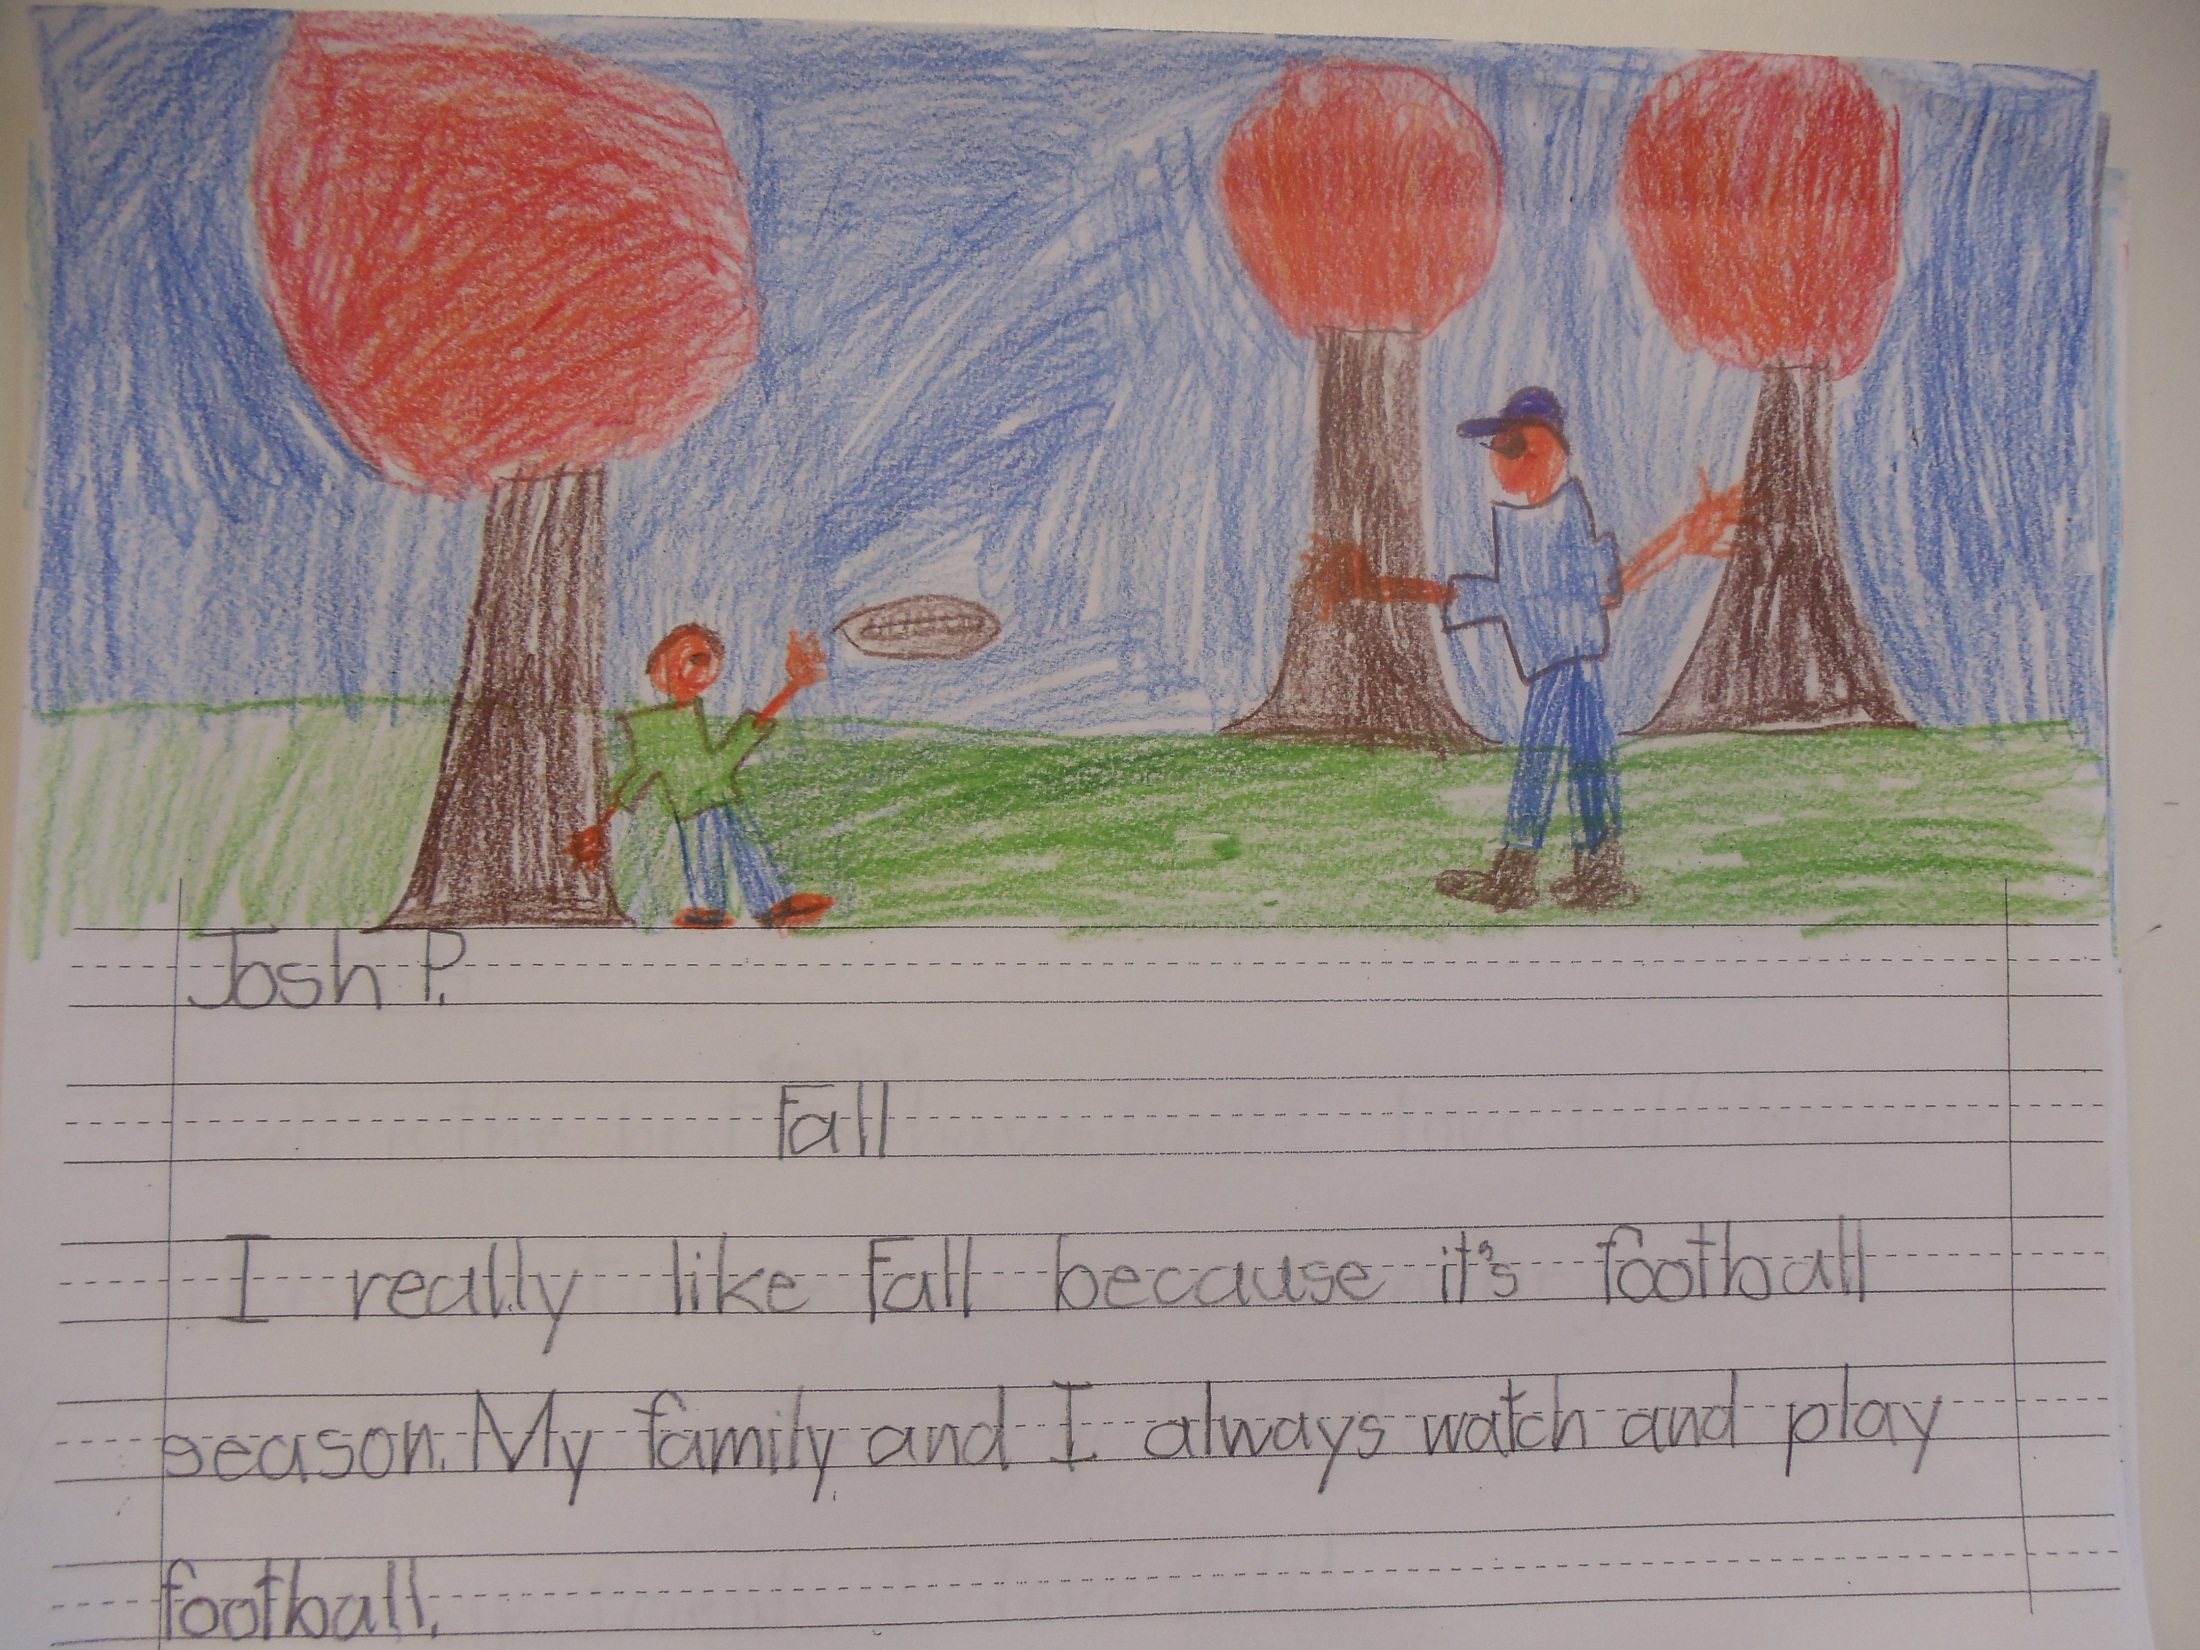 Josh P.
Fall
I really like Fall because it's football
season. My family and I always watch and play
football.